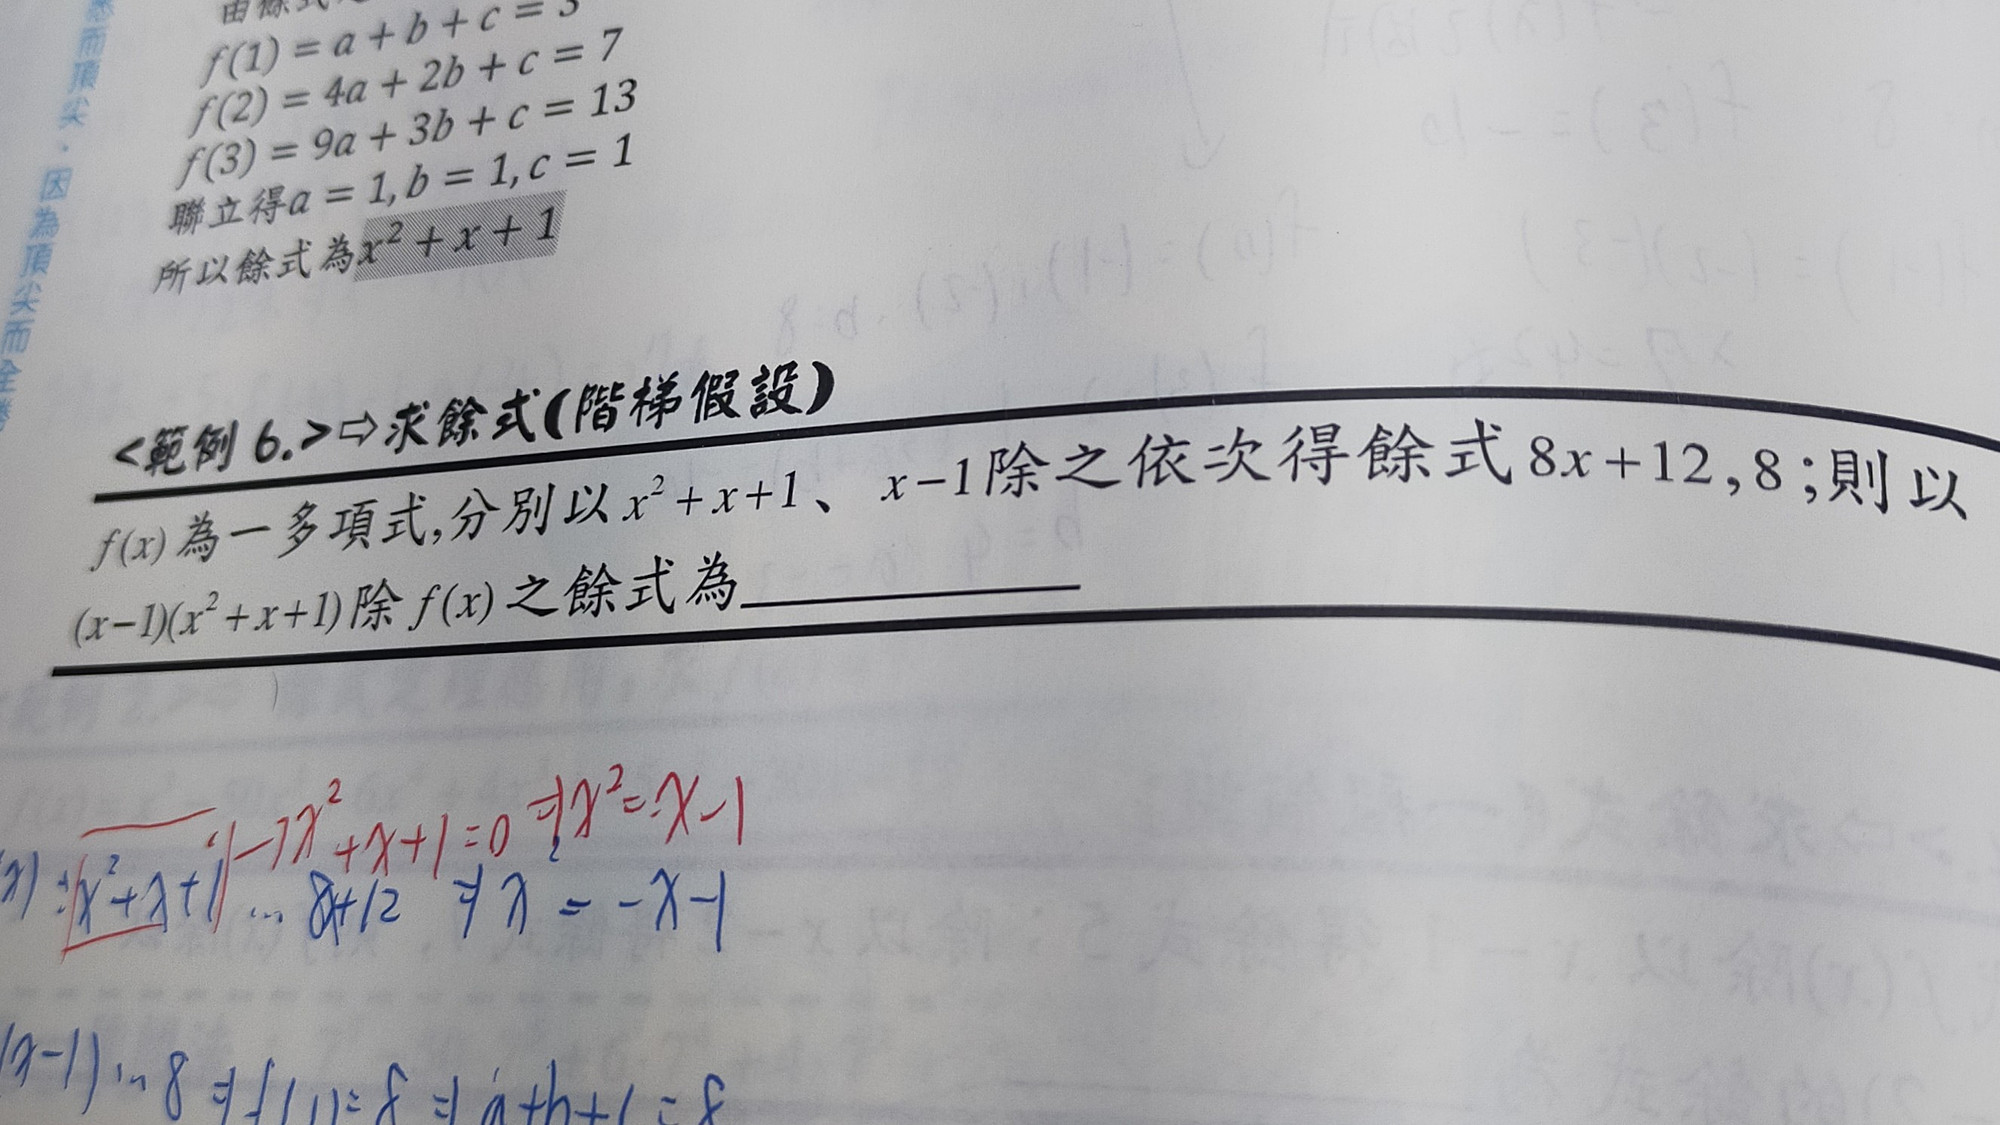 f(1) = a + b + c = 3
f(2) = 4a + 2b + c = 7
f(3) = 9a + 3b + c = 13
聯立得a = 1, b = 1, c = 1
所以餘式為x² + x + 1
而頂尖．因為頂尖而全勝
<範例 6.>⇨求餘式(階梯假設)
f(x) 為一多項式,分別以 x² + x+1、 x−1除之依次得餘式 8x+12, 8 ;則以
(x−1)(x² + x+1) 除 f(x) 之餘式為__________
→ x² + x + 1 = 0 ⇒ x² = -x - 1
x² + x + 1 ... 8x+12 ⇒ x² = -x - 1
(x-1) ... 8 ⇒ f(1) = 8 ⇒ a+b+c = 8